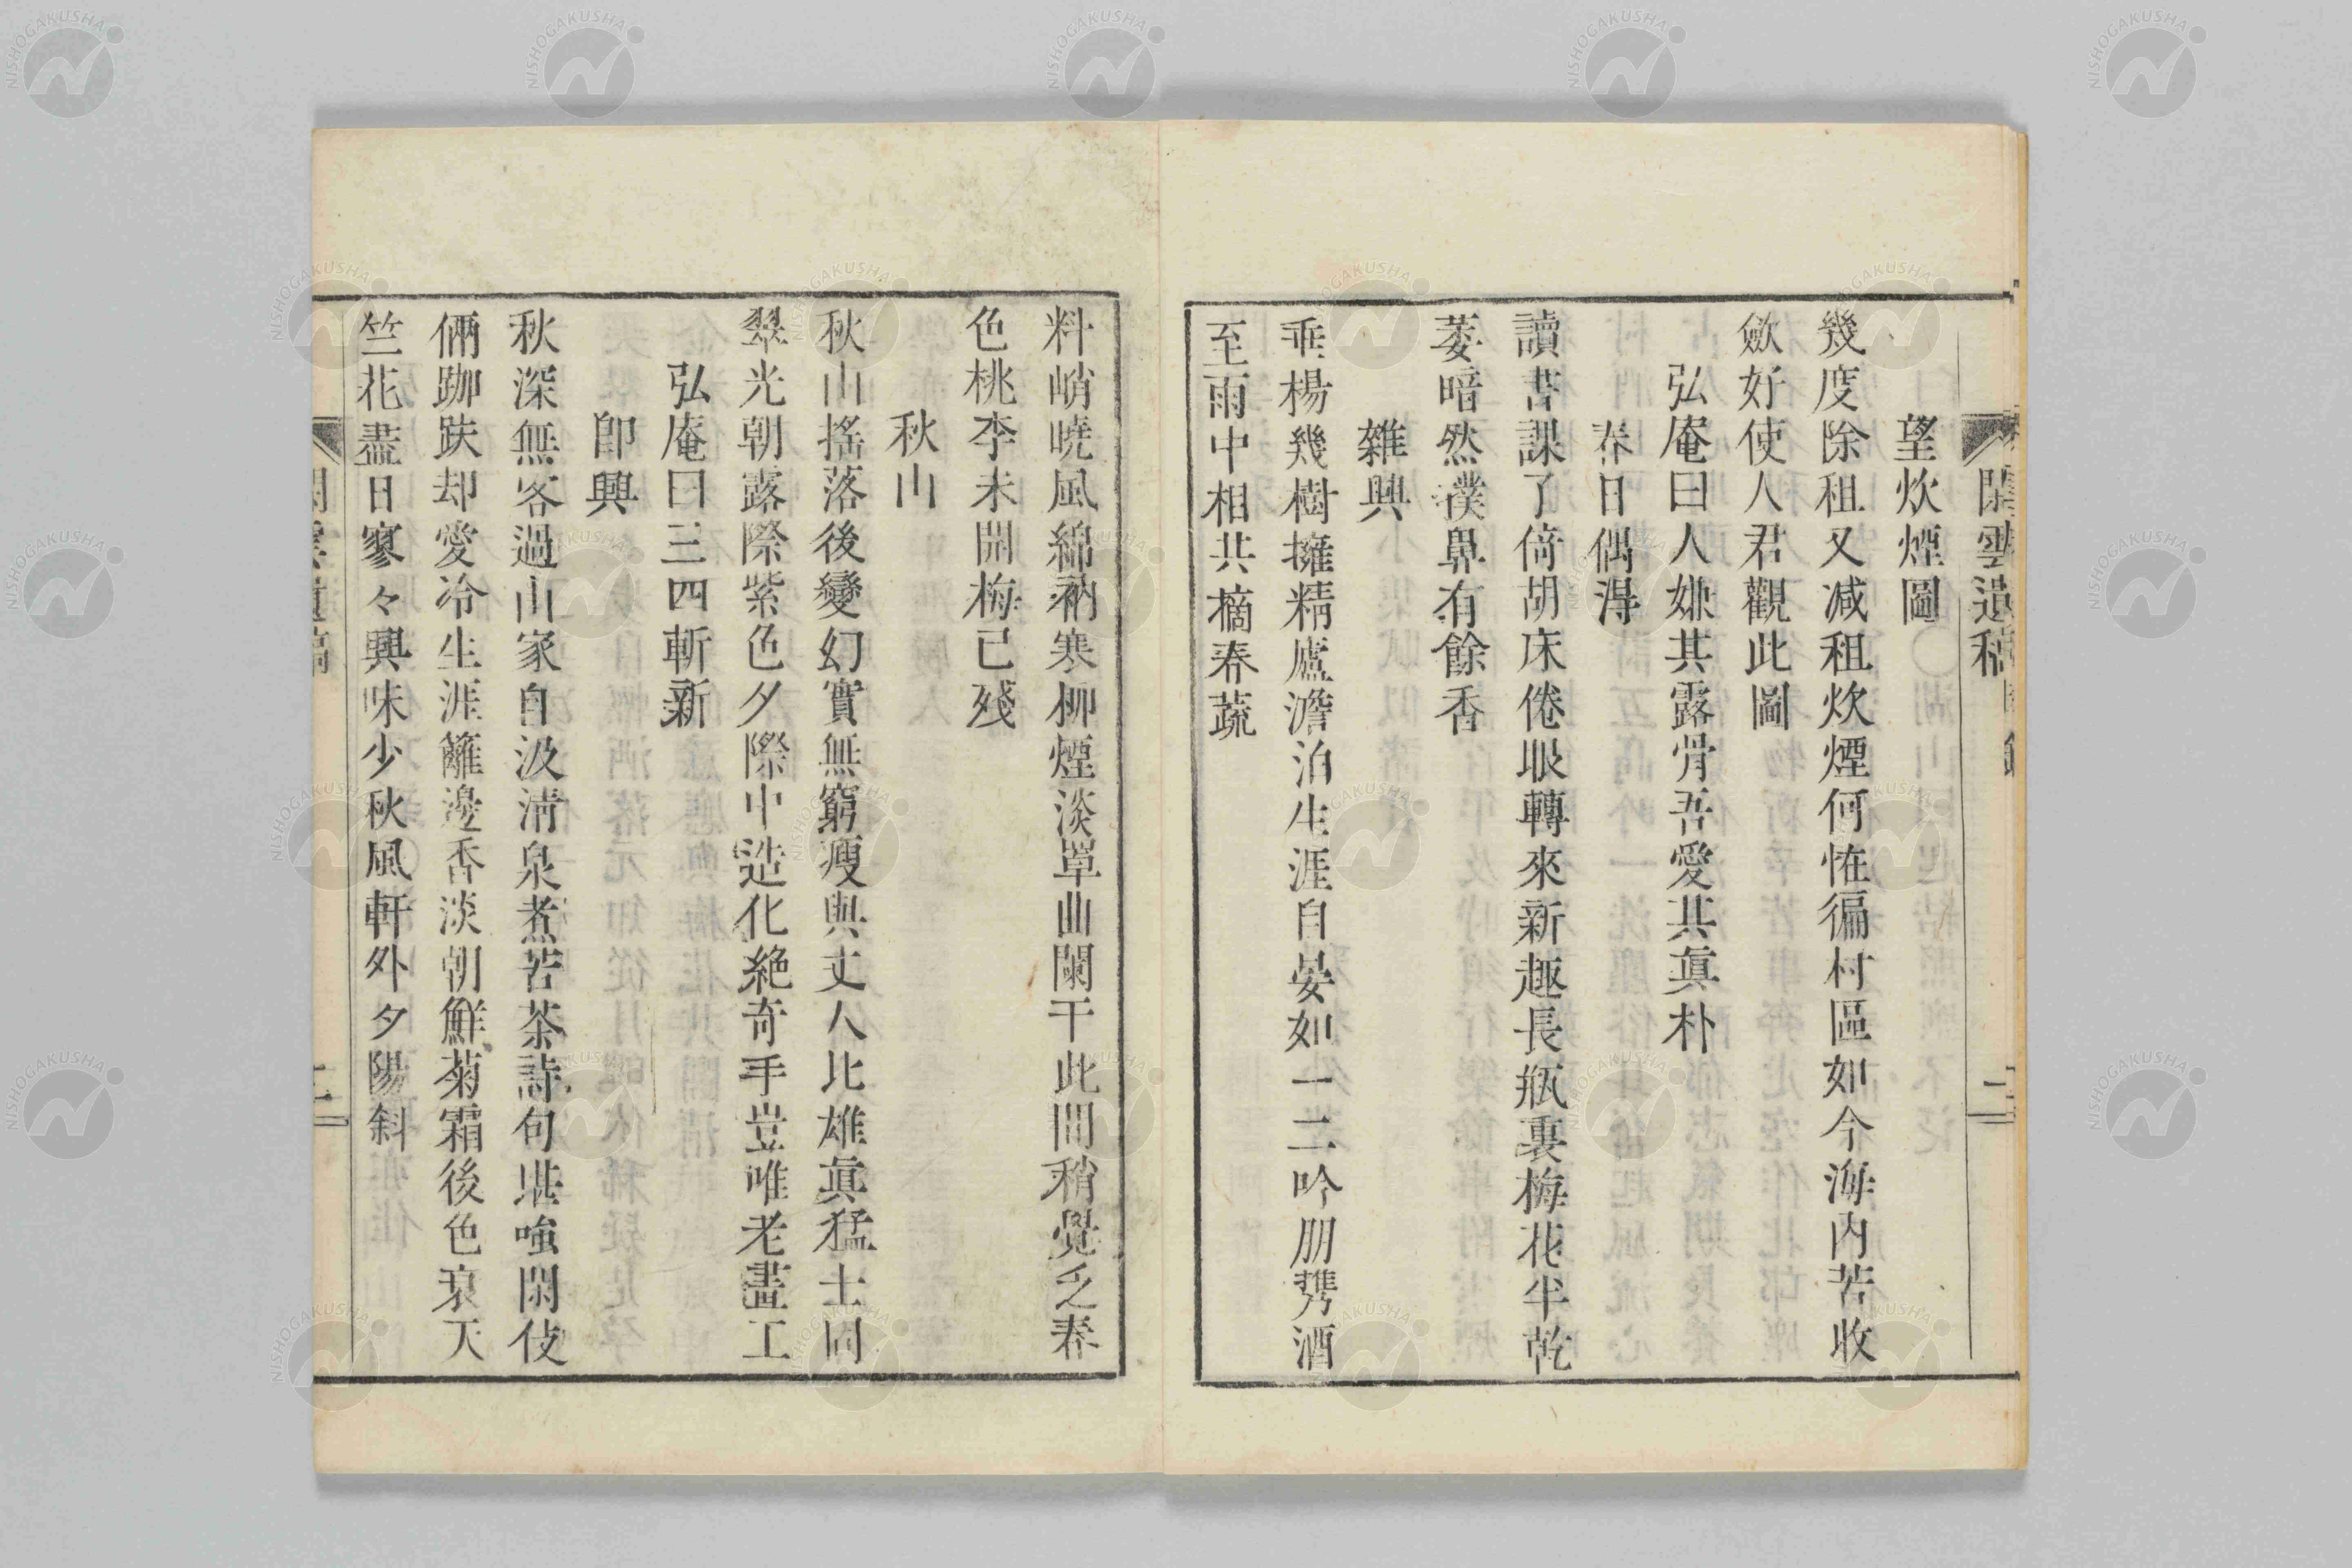 閑雲遺稿
二
望炊煙圖
幾度除租又减租炊煙何恠徧村區如今海内苦收
歛好使人君觀此圖
弘庵曰人嫌其露骨吾愛其眞朴
春日偶得
讀書課了倚胡床倦眼轉來新趣長瓶裏梅花半乾
萎暗然撲鼻有餘香
雜興
垂楊幾樹擁精廬澹泊生涯自晏如一二吟朋携酒
至雨中相共摘春蔬
料峭曉風綿衲寒柳煙淡罩曲闌干此間稍覺乏春
色桃李未開梅已殘
秋山
秋山搖落後變幻實無窮瘦與丈人比雄眞猛士同
翠光朝露際紫色夕際中造化絶奇手豈唯老畫工
弘庵曰三四斬新
即興
秋深無客過山家自汲淸泉煮苦茶詩句堪嗤閑伎
倆跏趺却愛冷生涯籬邊香淡朝鮮菊霜後色衰天
竺花盡日寥々興味少秋風軒外夕陽斜
閑雲遺稿
二
NISHOGAKUSHA